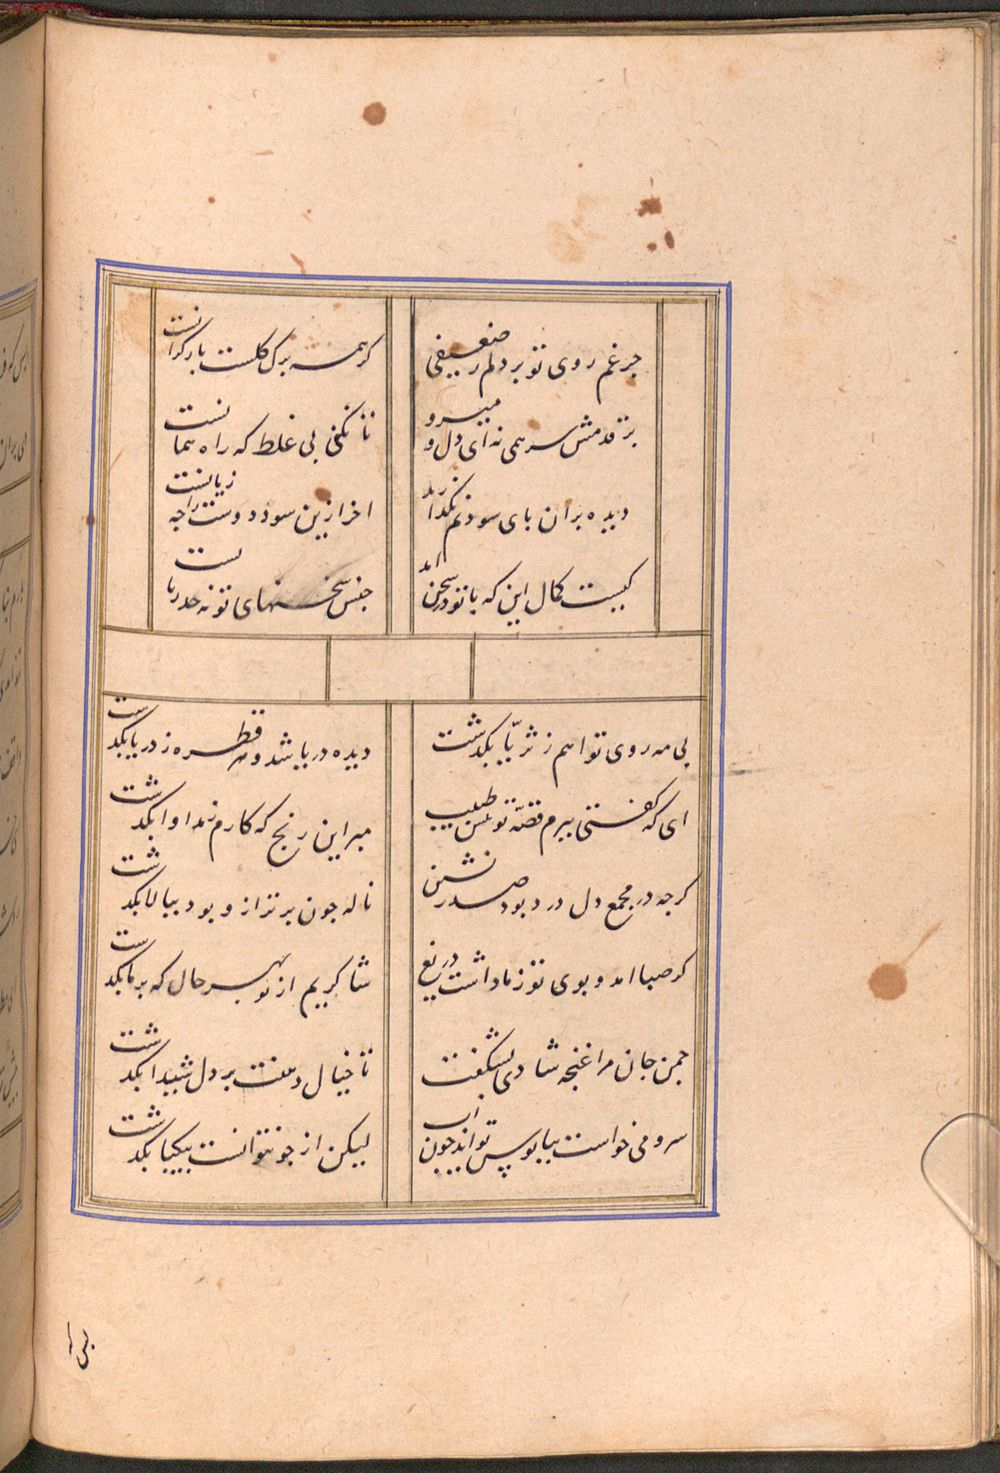 جز غم روی تو بر دلم ز ضعیفی
کر همه برک کلست بار کرانست
بر قدمش سر همی نه ای دل و میرو
تا نکنی پی غلط که راه همانست
دیده بران بای سودنم نکذارند
اخر ازین سود دوست را چه زیانست
کیست کمال این که با تو در سخن اید
جنس سخنهای تو نه حد
بی مه روی تو اهم ز ثریّا بکذشت
دیده دریا شد و هر قطره ز دریا بکذشت
ای که کفتی ببرم قصّه تو طبیب
مبر این رنج که کارم ز مداوا بکذشت
کرچه در مجمع دل درد بود صدر نشین
ناله چون برتر ازو بود ببالا بکذشت
کر صبا امد و بوی تو ز ما داشت دریغ
شاکریم از تو بهر حال که بر ما بکذشت
چمن جان مرا غنچه شادی بشکفت
تا خیال دهنت بر دل شیدا بکذشت
سرو می خواست بپابوس تو اید چون اب
لیکن از جو نتوانست بیکپا بکذشت